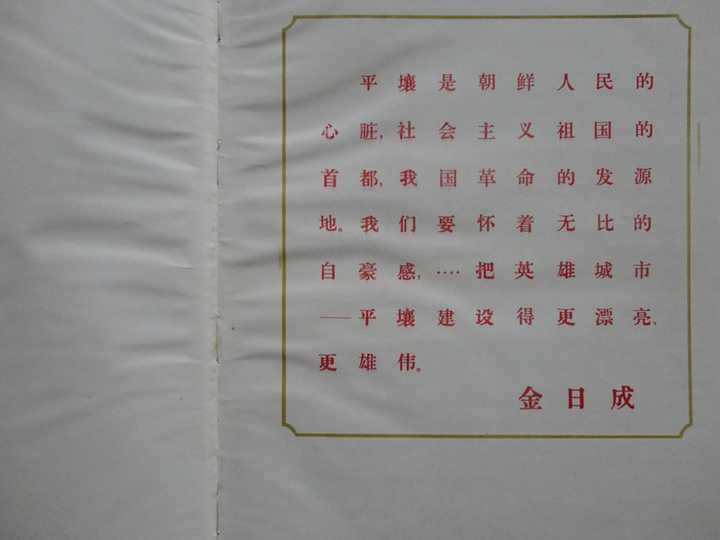 平壤是朝鲜人民的
心脏,社会主义祖国的
首都,我国革命的发源
地。我们要怀着无比的
自豪感,····把英雄城市
——平壤建设得更漂亮、
更雄伟。
金日成